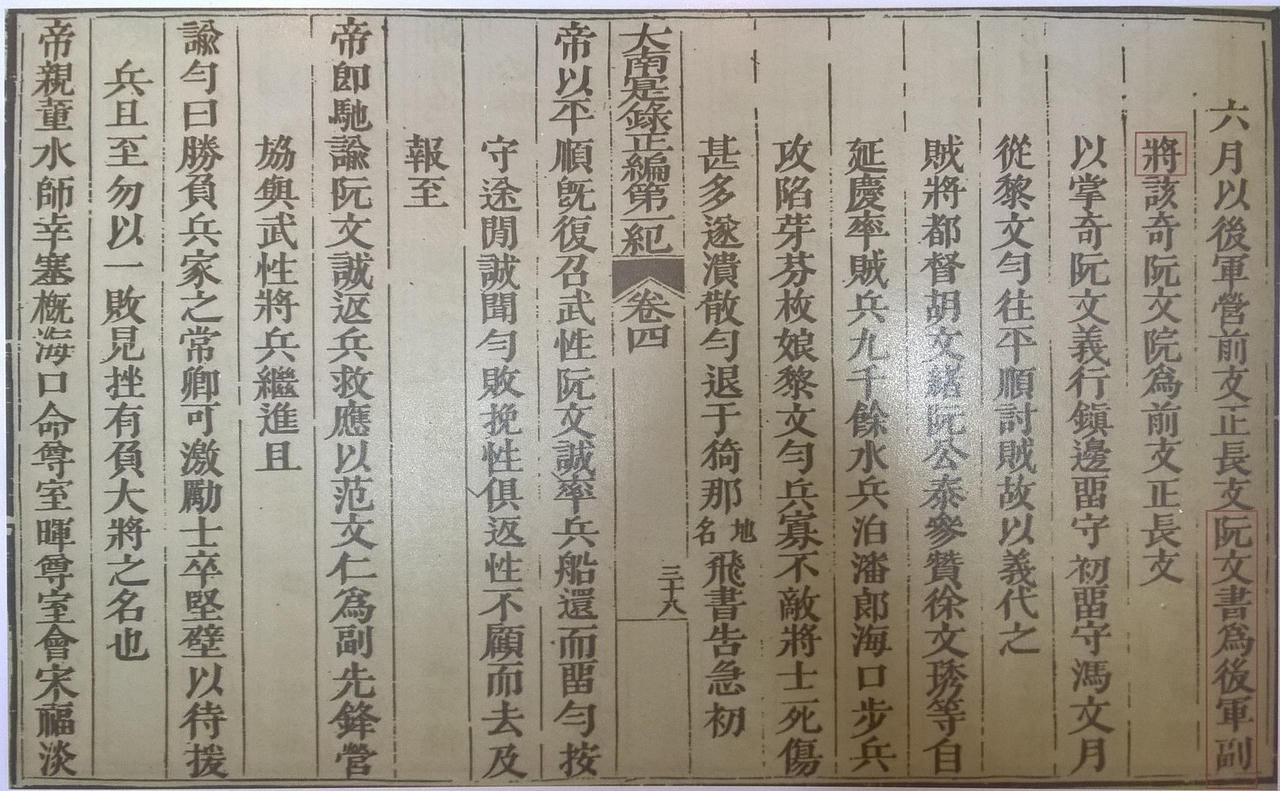 六月以後軍營前支正長支阮文書爲後軍副
將該奇阮文院爲前支正長支
以掌奇阮文義行鎮邊畱守初畱守馮文月
從黎文勻往平順討賊故以義代之
賊將都督胡文緒阮公泰參贊徐文琇等自
延慶率賊兵九千餘水兵泊潘郎海口步兵
攻陷芽芬枚娘黎文勻兵寡不敵將士死傷
甚多遂潰散勻退于猗那地名飛書告急初
大南寔錄正編第一紀 卷四 三十八
帝以平順旣復召武性阮文誠率兵船還而畱勻按
守途閒誠聞勻敗挽性俱返性不顧而去及
報至
帝卽馳諭阮文誠返兵救應以范文仁爲副先鋒營
協與武性將兵繼進且
諭勻曰勝負兵家之常卿可激勵士卒堅壁以待援
兵且至勿以一敗見挫有負大將之名也
帝親董水師幸塞槪海口命尊室暉尊室會宋福淡